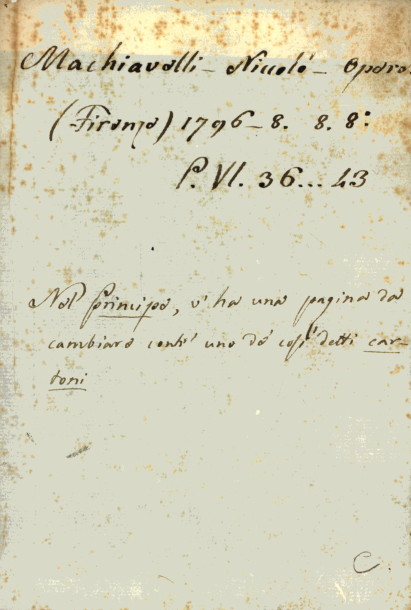 Machiavelli – Niccoló – Opere.
(Firenze) 1796–8. 8. 8º:
P. VI. 36... 43
Nel Principe, v'ha una pagina da
cambiare cont' uno de' così detti car-
toni
C.